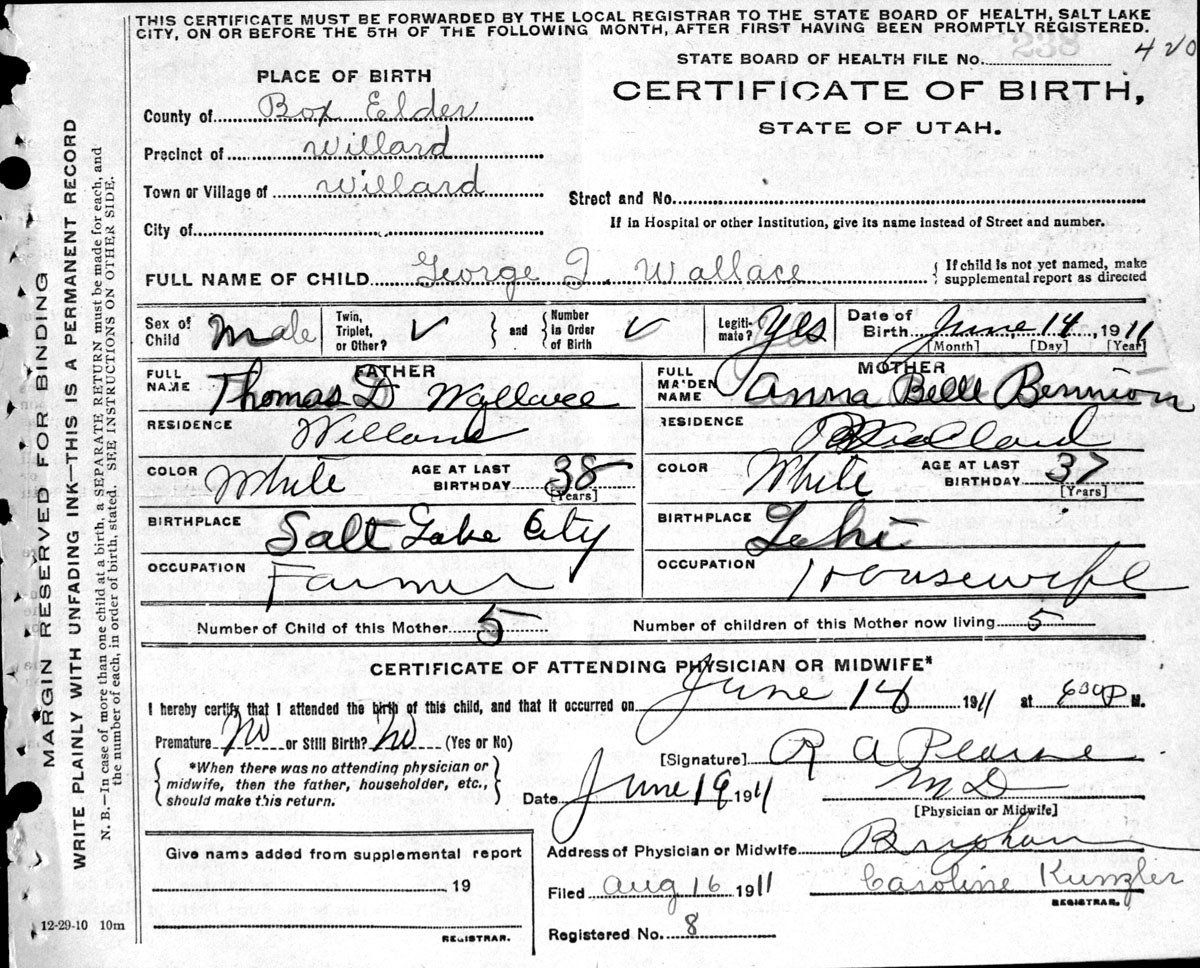 THIS CERTIFICATE MUST BE FORWARDED BY THE LOCAL REGISTRAR TO THE STATE BOARD OF HEALTH, SALT LAKE
CITY, ON OR BEFORE THE 5TH OF THE FOLLOWING MONTH, AFTER FIRST HAVING BEEN PROMPTLY REGISTERED.
238
STATE BOARD OF HEALTH FILE No. 420
PLACE OF BIRTH
CERTIFICATE OF BIRTH,
STATE OF UTAH.
County of Box Elder
Precinct of Willard
Town or Village of Willard
Street and No.
City of
If in Hospital or other Institution, give its name instead of Street and number.
FULL NAME OF CHILD George I. Wallace { If child is not yet named, make
supplemental report as directed
Sex of Child Male
Twin, Triplet, or Other? ✓ } and { Number in Order of Birth ✓
Legiti-mate? Yes
Date of Birth June 14, 1911
[Month] [Day] [Year]
FATHER
FULL NAME Thomas D Wallace
RESIDENCE Willard
COLOR White AGE AT LAST BIRTHDAY 38 [Years]
BIRTHPLACE Salt Lake City
OCCUPATION Farmer
MOTHER
FULL MAIDEN NAME Anna Belle Bennion
RESIDENCE Willard
COLOR White AGE AT LAST BIRTHDAY 37 [Years]
BIRTHPLACE Lehi
OCCUPATION Housewife
Number of Child of this Mother 5 Number of children of this Mother now living 5
CERTIFICATE OF ATTENDING PHYSICIAN OR MIDWIFE*
I hereby certify that I attended the birth of this child, and that it occurred on June 14 1911 at 630 P M.
Premature No or Still Birth? No (Yes or No)
{ *When there was no attending physician or
midwife, then the father, householder, etc.,
should make this return. }
[Signature] R A Pearse
M D
[Physician or Midwife]
Date June 19 1911
Give name added from supplemental report
19
REGISTRAR.
Address of Physician or Midwife Brigham
Filed Aug 16 1911 Caroline Kunzler
REGISTRAR.
Registered No. 8
12-29-10 10m
MARGIN RESERVED FOR BINDING
WRITE PLAINLY WITH UNFADING INK—THIS IS A PERMANENT RECORD
N. B.—In case of more than one child at a birth, a SEPARATE RETURN must be made for each, and
the number of each, in order of birth, stated. SEE INSTRUCTIONS ON OTHER SIDE.